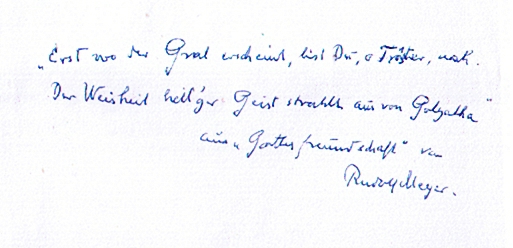 „Erst wo der Gral erscheint, bist Du, o Tröster, nah.
Der Weisheit heil'ger Geist strahlt aus von Golgatha“
aus „Gottesfreundschaft“ von
Rudolf Meyer.